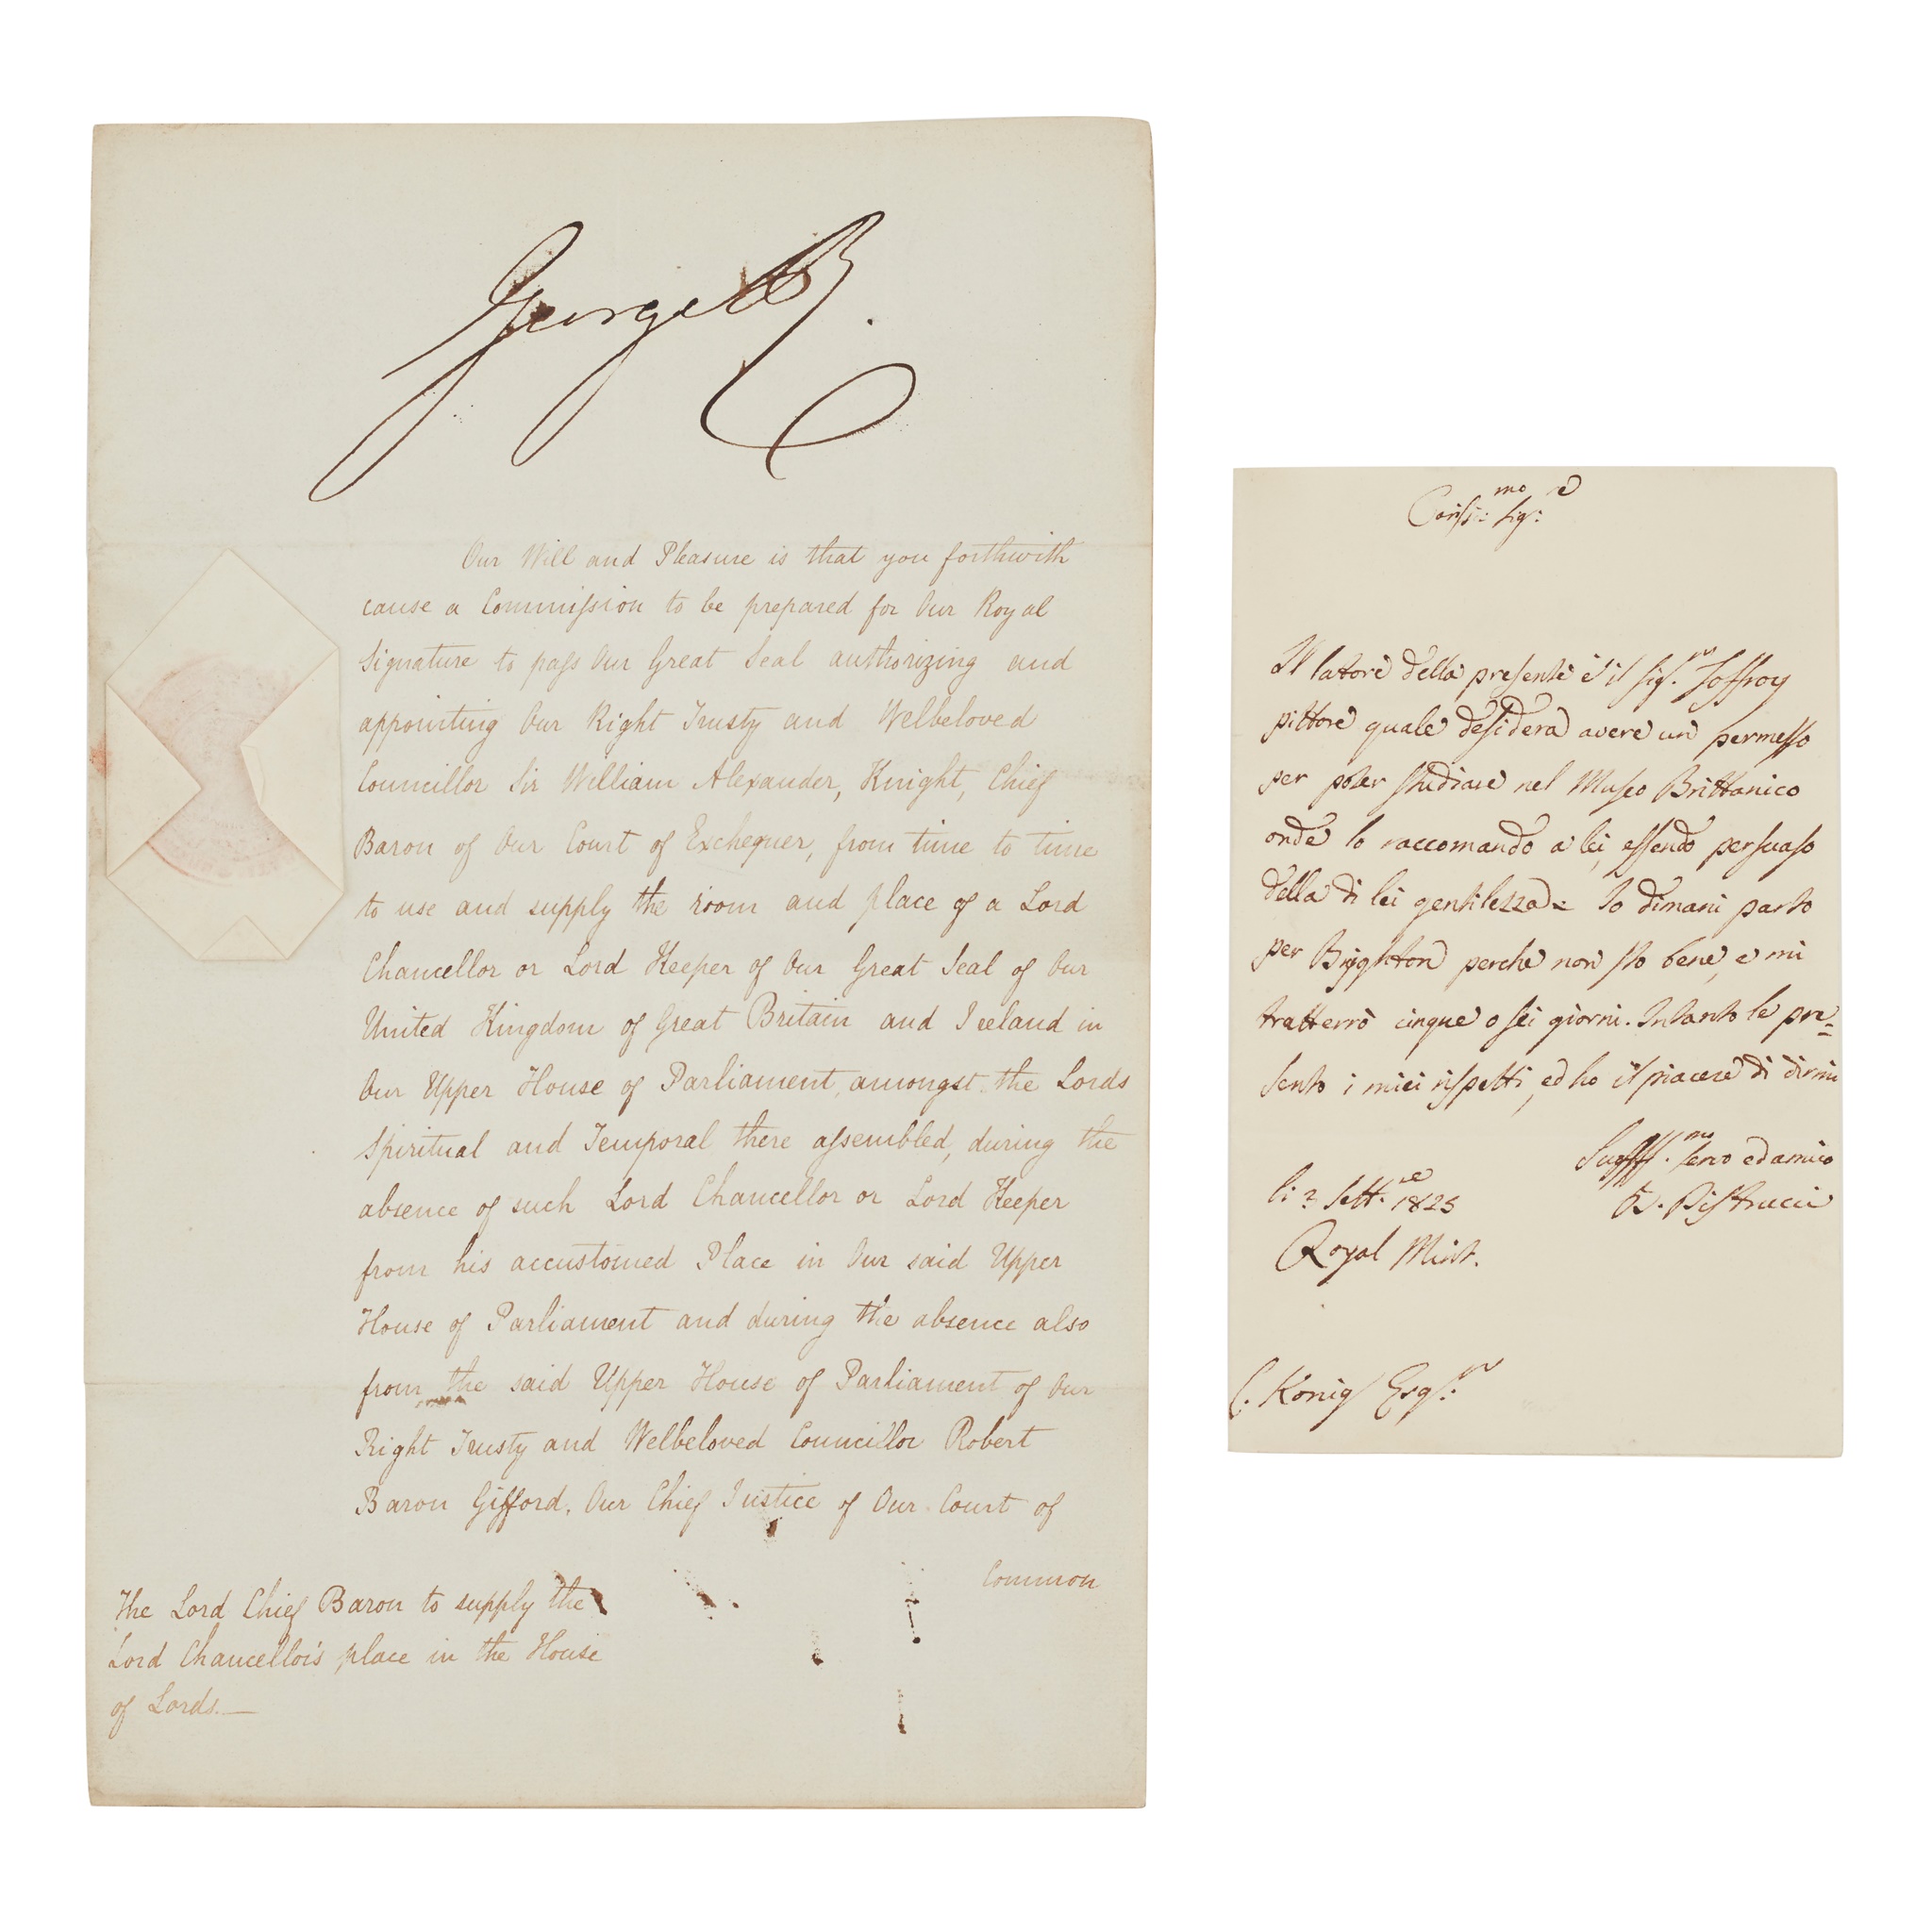 George R.
Our Will and Pleasure is that you forthwith
cause a Commission to be prepared for Our Royal
Signature to pass Our Great Seal authorizing and
appointing Our Right Trusty and Welbeloved
Councillor Sir William Alexander, Knight, Chief
Baron of Our Court of Exchequer, from time to time
to use and supply the room and place of a Lord
Chancellor or Lord Keeper of Our Great Seal of Our
United Kingdom of Great Britain and Ireland in
Our Upper House of Parliament, amongst the Lords
Spiritual and Temporal there assembled, during the
absence of such Lord Chancellor or Lord Keeper
from his accustomed Place in Our said Upper
House of Parliament and during the absence also
from the said Upper House of Parliament of Our
Right Trusty and Welbeloved Councillor Robert
Baron Gifford, Our Chief Justice of Our Court of
Common
The Lord Chief Baron to supply the
Lord Chancellor's place in the House
of Lords.—
Cariss:mo Sig:e
Il latore della presente è il Sig.re Joffroy
pittore quale desidera avere un permesso
per poter studiare nel Museo Brittanico
onde lo raccomando a lei, essendo persuaso
della di lei gentilezza. Io dimani parto
per Brighton perche non sto bene, e mi
tratterrò cinque o sei giorni. Intanto le pre=
sento i miei rispetti, ed ho il piacere di dirmi
Suo mo servo ed amico
li 2 Sett.re 1825
B. Pistrucci
Royal Mint.
C. König Esq:re